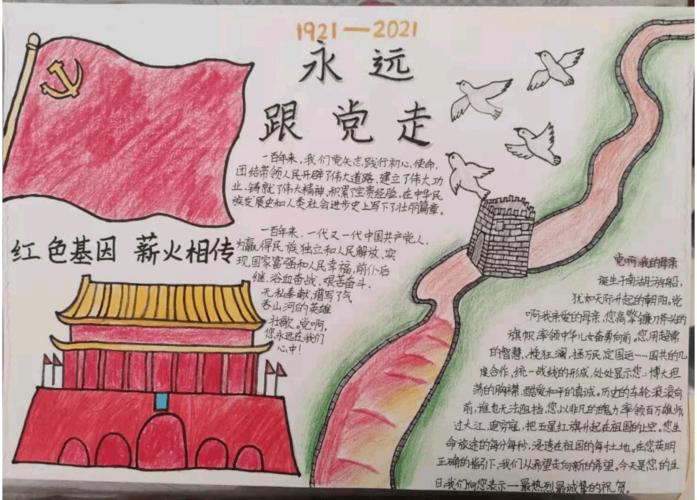 1921—2021
永远
跟党走
一百年来，我们党矢志践行初心、使命，
团结带领人民开辟了伟大道路，建立了伟大功
业，铸就了伟大精神，积累了宝贵经验，在中华民
族发展史和人类社会进步史上写下了壮丽篇章。
红色基因 薪火相传
一百年来，一代又一代中国共产党人，
为赢得民族独立和人民解放、实
现国家富强和人民幸福，前仆后
继、浴血奋战、艰苦奋斗、
无私奉献，谱写了气
吞山河的英雄
壮歌。党啊，
您永远在我们
心中！
党啊，我的母亲
诞生于南湖游船，
犹如天际升起的朝阳，党
啊我亲爱的母亲，您高擎镰刀斧头的
旗帜，率领中华儿女奋勇向前。您用超常
的智慧，挽狂澜，拯万民定国运—国共的几
度合作，统一战线的形成，处处显示您—博大坦
荡的胸襟，酷爱和平的真诚。历史的车轮滚滚向
前，谁也无法阻挡。您以非凡的魄力率领百万雄师
过大江，更穷寇，把五星红旗升起在祖国的上空。您生
命旅途的每分每秒，浸透在祖国的每寸土地。在您英明
正确的指引下，我们从希望走向新的希望。今天是您的生
日，我们向您表示—最热烈最诚挚的祝贺